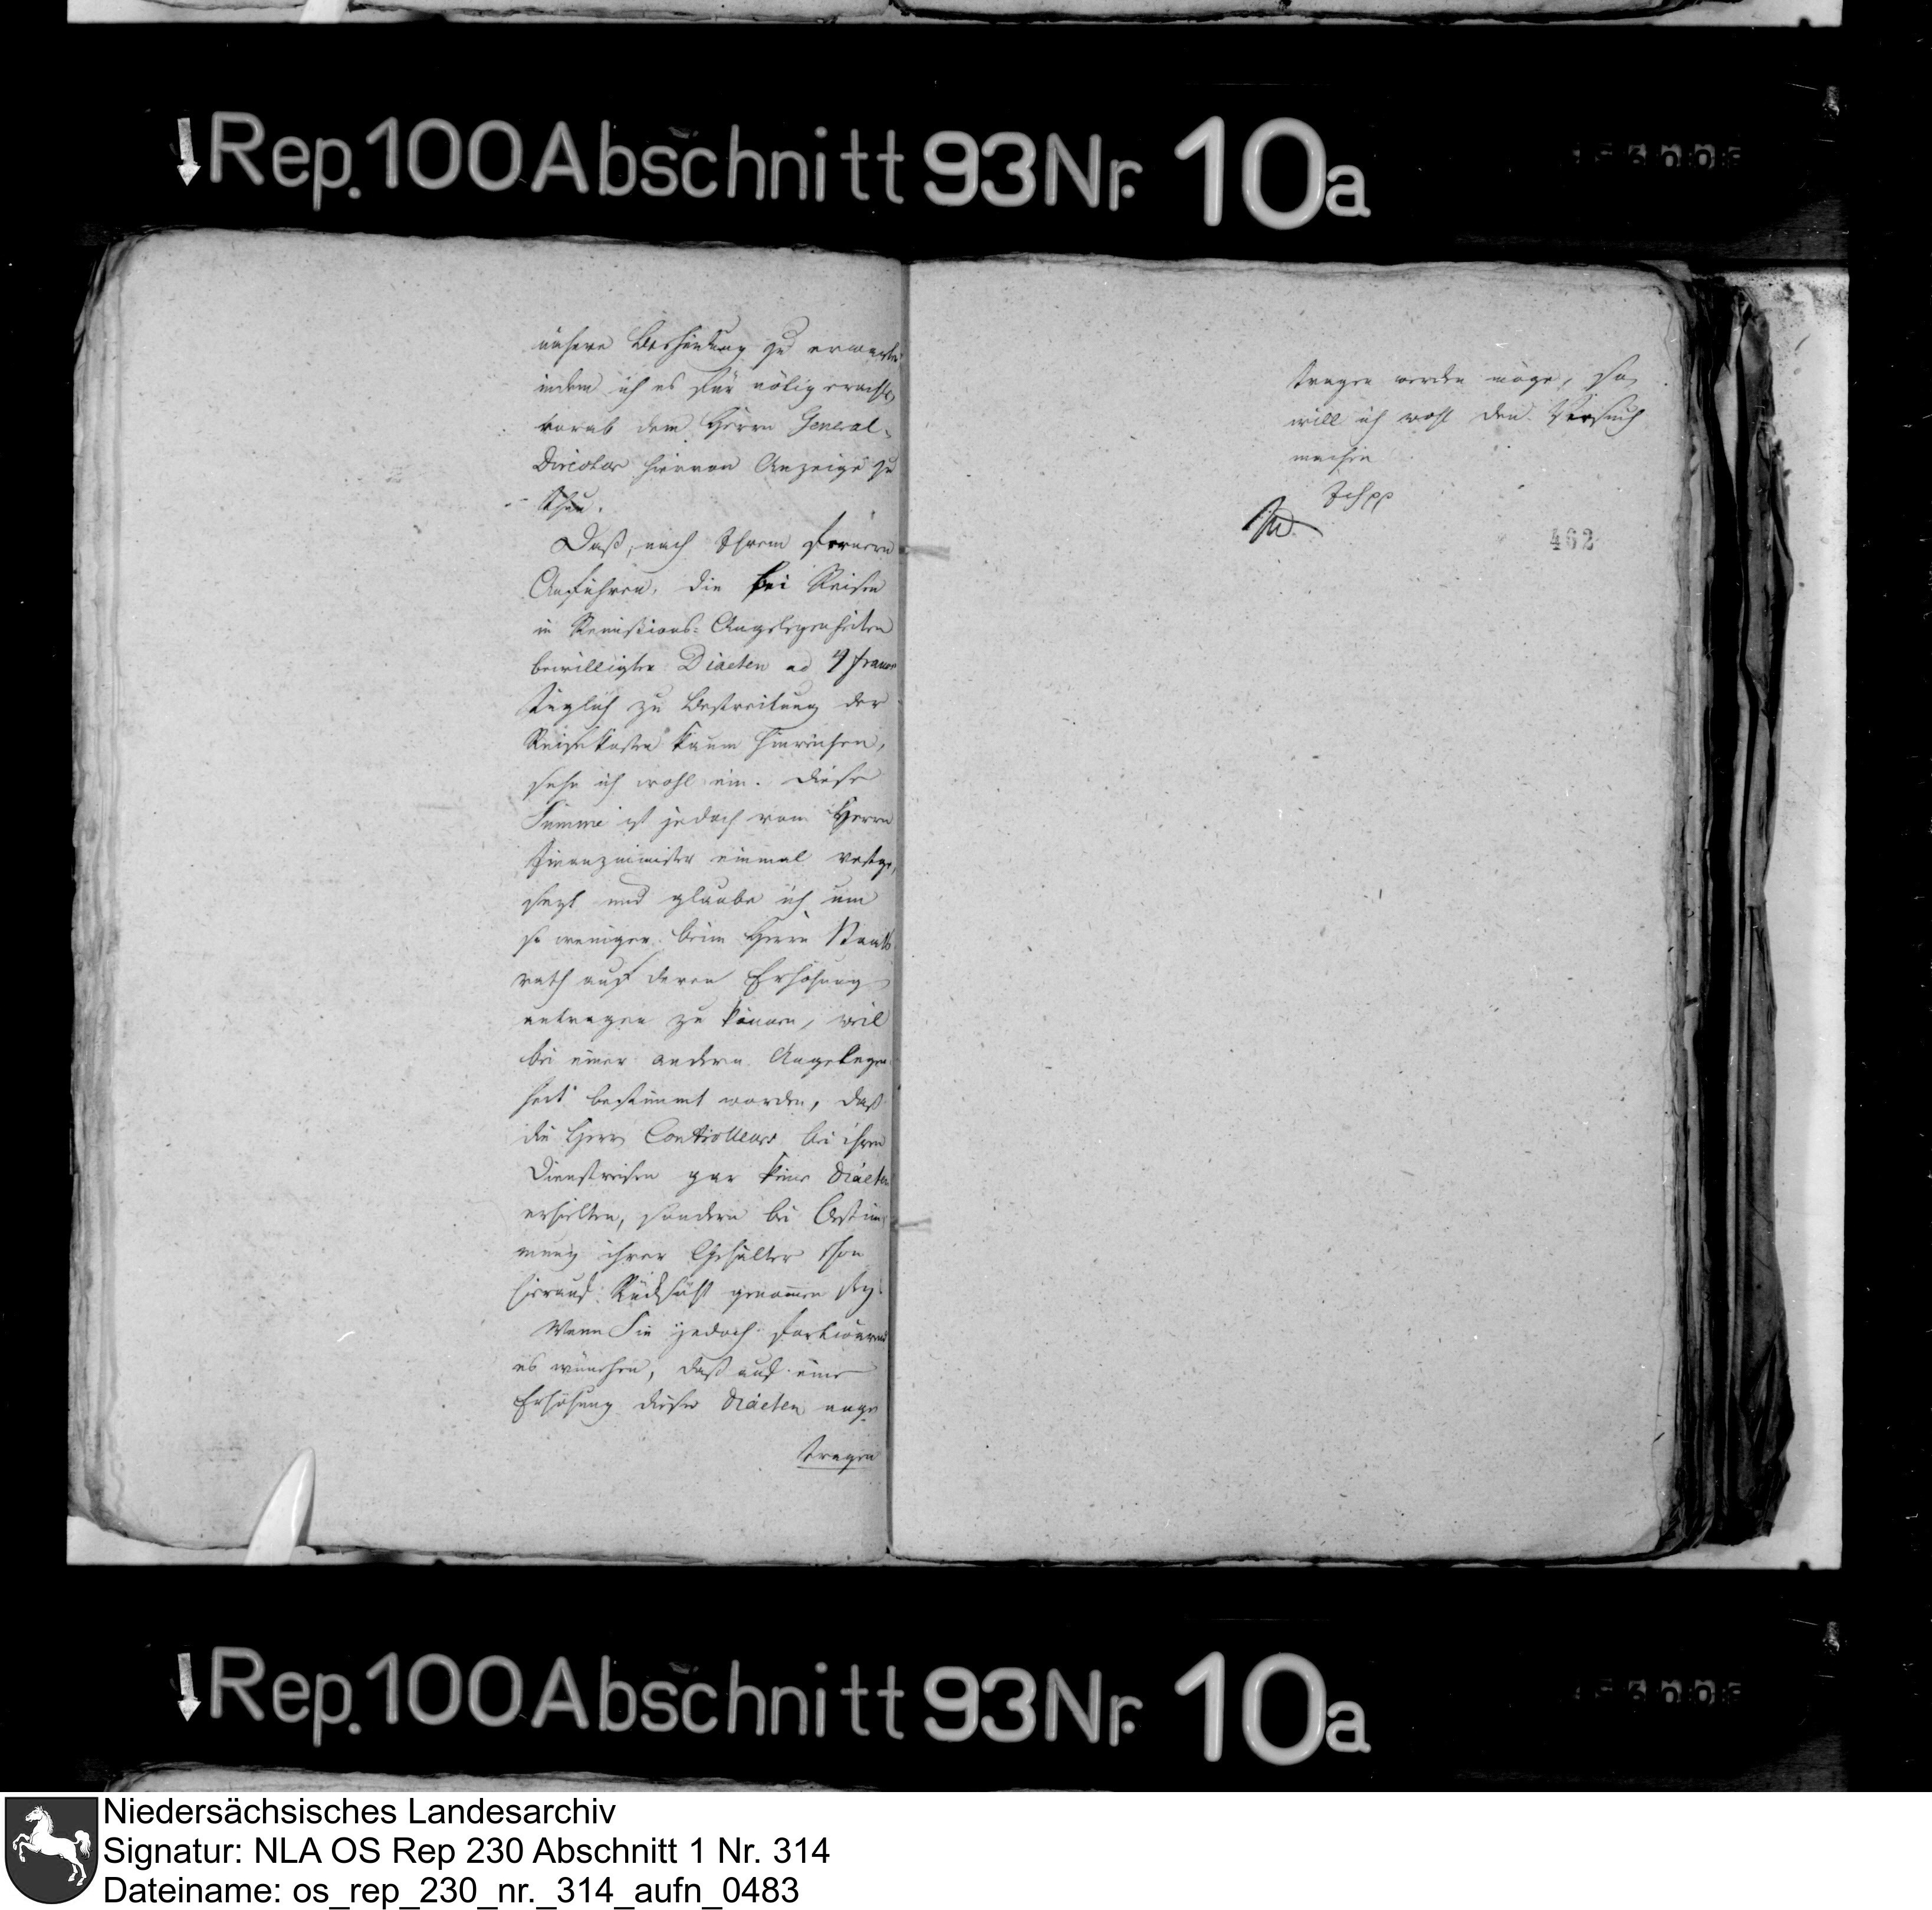 Rep. 100 Abschnitt 93 Nr. 10a
nähere Bescheidung zu erwarten,
indem ich es für nötig erachte,
vorab dem Herrn General-
Director hievon Anzeige zu
thun.
Daß, nach Ihrem ferneren
Anführen, die bei Reisen
in Remissions-Angelegenheiten
bewilligten Diaeten ad 4 francs
täglich zu Bestreitung der
Reisekosten kaum hinreichen,
sehe ich wohl ein. Diese
Summe ist jedoch vom Herrn
Finanzminister einmal vestge-
setzt und glaube ich um
so weniger beim Herrn Staats
rath auf deren Erhöhung
antragen zu können, weil
bei einer andern Angelegen-
heit bestimmt worden, daß
die Herrn Controlleurs bei ihren
Dienstreisen gar keine Diaeten
erhielten, sondern bei Bestim-
mung ihrer Gehälter schon
hierauf Rücksicht genommen sey.
Wenn Sie jedoch fortwährend
es wünschen, daß auf eine
Erhöhung dieser Diaeten ange
tragen
tragen werden möge, so
will ich wohl den Versuch
machen
Ich pp
462
Rep. 100 Abschnitt 93 Nr. 10a
Niedersächsisches Landesarchiv
Signatur: NLA OS Rep 230 Abschnitt 1 Nr. 314
Dateiname: os_rep_230_nr._314_aufn_0483